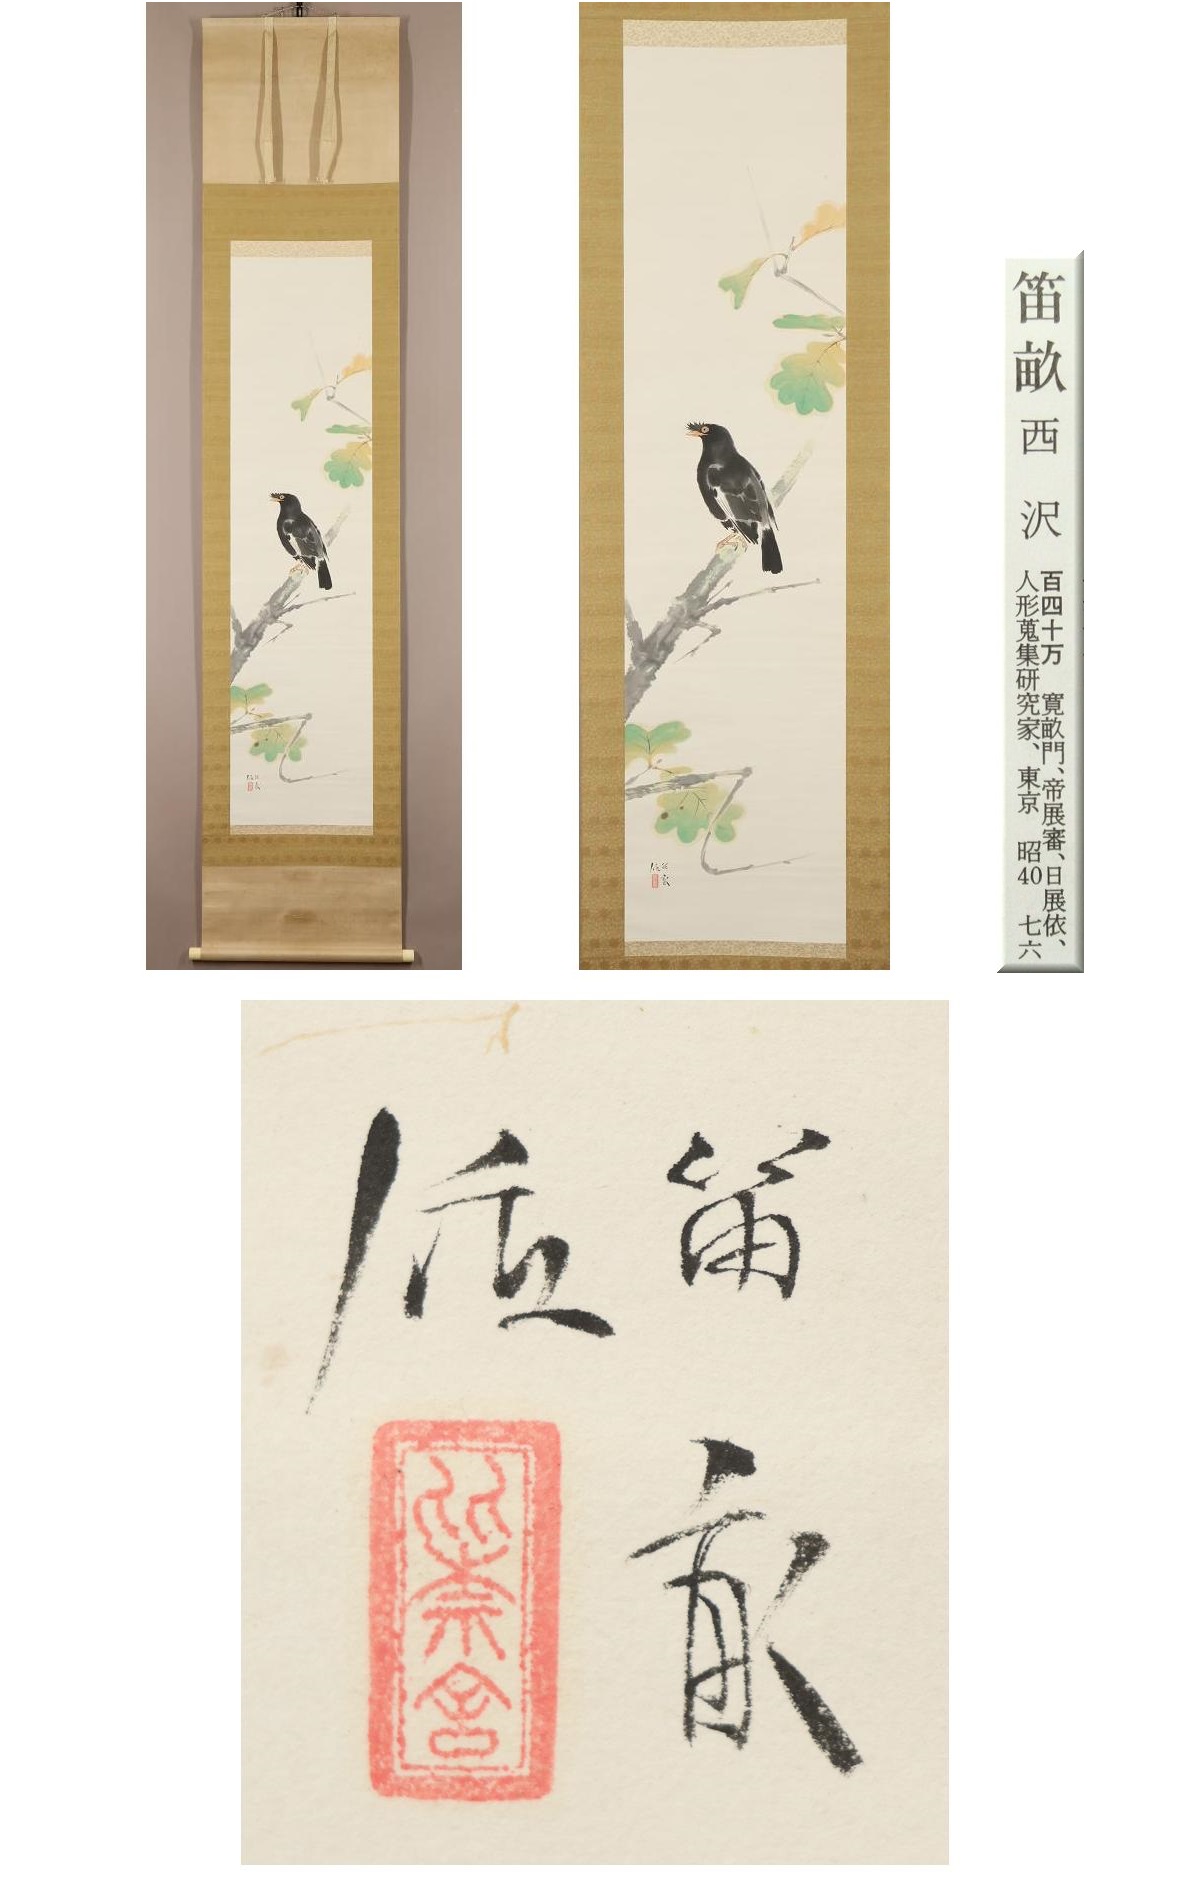 笛畝 西沢
百四十万 寛畝門、帝展審、日展依、
人形蒐集研究家、東京 昭40 七六
笛畝